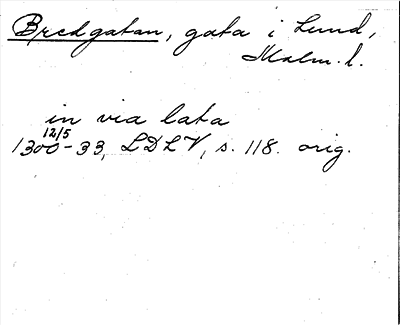 Bredgatan, gata i Lund,
Malm. l.
in via lata
12/5
1300-33, LDLV, s. 118. orig.